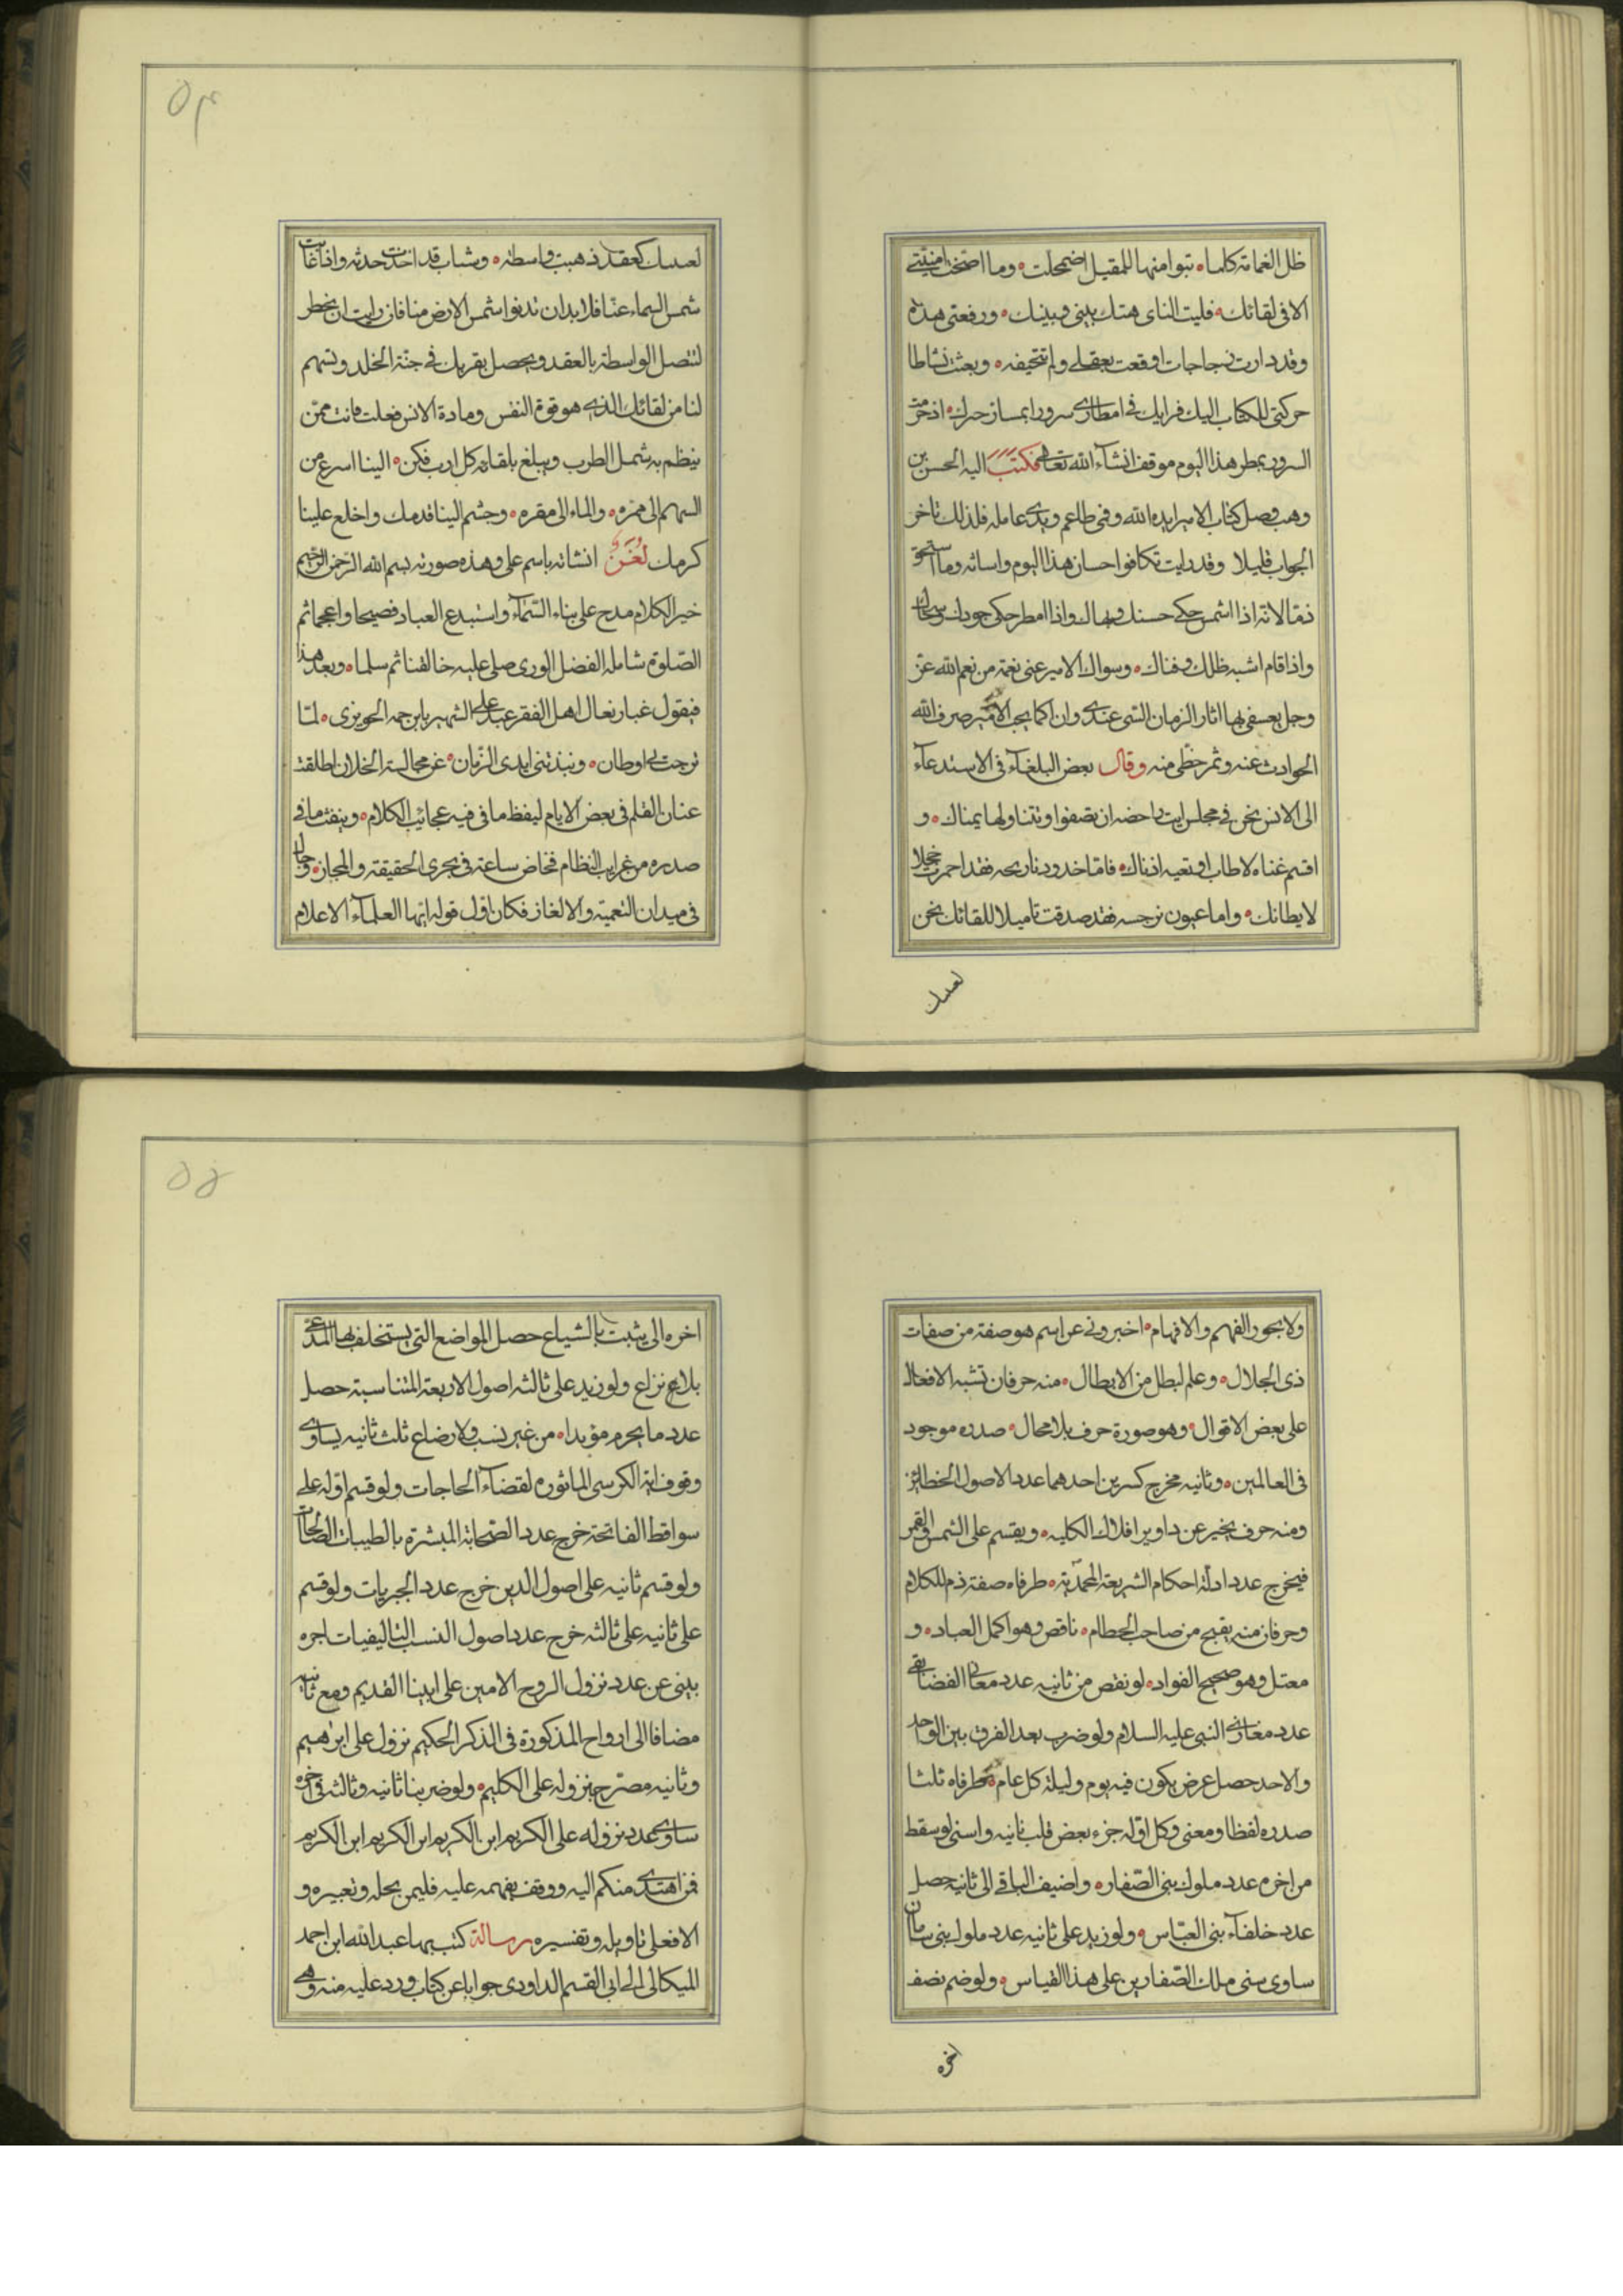 ظل الغمامة كلما تبوا منها للمقيل اضمحلت وما امنيتى
الا فى لقائك فليت الناى هتك بينى وبينك ورقعتى هذه
وقد دارت زجاجات اوقعت بعقلى ولم تتحيفه وبعثت نشاطا
حركنى للكتاب اليك فرايك فى امطارى سرورا بسار خبرك اذ حرمت
السرور بمطر هذا اليوم موقفا انشاء الله تعالى فكتب اليه الحسن بن
وهب وصل كتاب الامير ايده الله وفمى طاعم ويدى عاملة فلذلك تاخر
الجواب قليلا وقد رايت تكافوا احسان هذا اليوم واسائته وما استحق
ذما لانه اذا اشمس حكى حسنك وبهاك واذا امطر حكى جودك وسخاك
واذا قام اشبه ظلك وفناك وسوال الامير عنى نعمة من نعم الله عز
وجل يعفى بها اثار الزمان السيئ عندى وانا كما يحب الامير صرف الله
الحوادث عنه وثمر حظى منه وقال بعض البلغاء فى الاستدعاء
الى الانس نحن فى مجلس ابت راحته ان تصفوا وتتناولها يمناك و
اقسم غناه لا طاب او تعيه اذناك فاما خدود نارنجه فقد احمرت خجلا
لابطائك واما عيون نرجسه فقد صدقت تاميلا للقائك نحن
لعدمك
٥٤
لعدمك كعقد ذهبت واسطته وشباب قد اخذت حدثه واذا غابت
شمس السماء عنا فلا بد ان تدنوا شمس الارض منا فان رايت ان تحضر
لتتصل الواسطة بالعقد ويحصل بقربك فى جنة الخلد وتسهم
لنا من لقائك الذى هو قوة النفس ومادة الانس فعلت فانت ممن
ينظم به شمل الطرب ويبلغ بلقائه كل ارب فكن الينا اسرع من
السهم الى ممره والماء الى مقره وجشم الينا قدمك واخلع علينا
كرمك لغز انشاته باسم على وهذه صورته بسم الله الرحمن الرحيم
خير الكلام مدح على بناء السماء واستبدع العباد فصيحا واعجما ثم
الصلوة شاملة الفضل الورى صلى عليه خالقنا ثم سلما وبعد هذا
فيقول غبار نعال اهل الفقر عبد على الشهير بابن جمه الحويزى لما
نزحت بى اوطان ونبذتنى ايدى الزمان عن مجالسة الخلان اطلقت
عنان القلم فى بعض الايام ليفظ ما فى فيه عجائب الكلام وينفث ما فى
صدره من غرايب النظام فخاض ساعة فى بحرى الحقيقة والمجاز وجال
فى ميدان التعمية والالغاز فكان اول قوله ايها العلماء الاعلام
ولا بحور الفهم والافهام اخبرونى عن اسم هو صفة من صفات
ذى الجلال وعلم لبطل من الابطال منه حرفان تشبه الافعال
على بعض الاقوال وهو صورة حرف بلا محال صدره موجود
فى العالمين وثانيه مخرج كسرين احدهما عدد الاصول الخطائين
ومنه حرف يخبر عن دواير افلاك الكلية ويقسم على الشمس والقمر
فيخرج عدد ادلة احكام الشريعة المحمدية طرفاه صفة ذم للكلام
وحرفان منه يقبح من صاحب الحطام ناقص وهو اكمل العباد و
معتل وهو صحيح الفواد لو نقص من ثانيه عدد معانى القضا بقى
عدد مغازى النبى عليه السلام ولو ضرب بعد الفرق بين الواحد
والاحد حصل عرض يكون فيه يوم وليلة كل عام طرفاه ثلثا
صدره لفظا ومعنى وكل اوله جزء بعض قلب ثانيه واسنى لو سقط
من اخره عدد ملوك بنى الصفاره واضيف الباقى الى ثانيه حصل
عدد خلفاء بنى العباس ولو زيد على ثانيه عدد ملوك بنى سامان
ساوى سنى ملك الصفارين على هذا القياس ولو ضم نصف
اخره
٥٥
اخره الى يثبت بالشياع حصل المواضع التى يستحلف بها المدعى
بلا نزاع ولو زيد على ثالثه اصول الاربعة المتناسبة حصل
عدد ما يحرم مؤبدا من غير نسب ولا رضاع ثلث ثانيه يساوى
وقوف اية الكرسى الماثوره لقضاء الحاجات ولو قسم اوله على
سواقط الفاتحة خرج عدد الصحابة المبشرة بالطيبات الصالحات
ولو قسم ثانيه على اصول الدين خرج عدد الجبريات ولو قسم
على ثانيه على ثالثه خرج عدد اصول النسب التاليفيات اخره
ينبى عن عدد نزول الروح الامين على ابينا القديم ومع ثانيه
مضافا الى ارواح المذكورة فى الذكر الحكيم نزول على ابراهيم
وثانيه مصرح بنزوله على الكليم ولو ضربنا ثانيه وثالثه فى اخره
ساوى عدد نزوله على الكريم ابن الكريم ابن الكريم ابن الكريم
فمن اهتدى منكم اليه ووقف بفهمه عليه فليمن بحله وتعبيره و
الا فعلى تاويله وتفسيره رسالة كتب بها عبد الله ابن احمد
الميكالى الى ابى القسم الداودى جوابا عن كتاب ورد عليه منه وهى